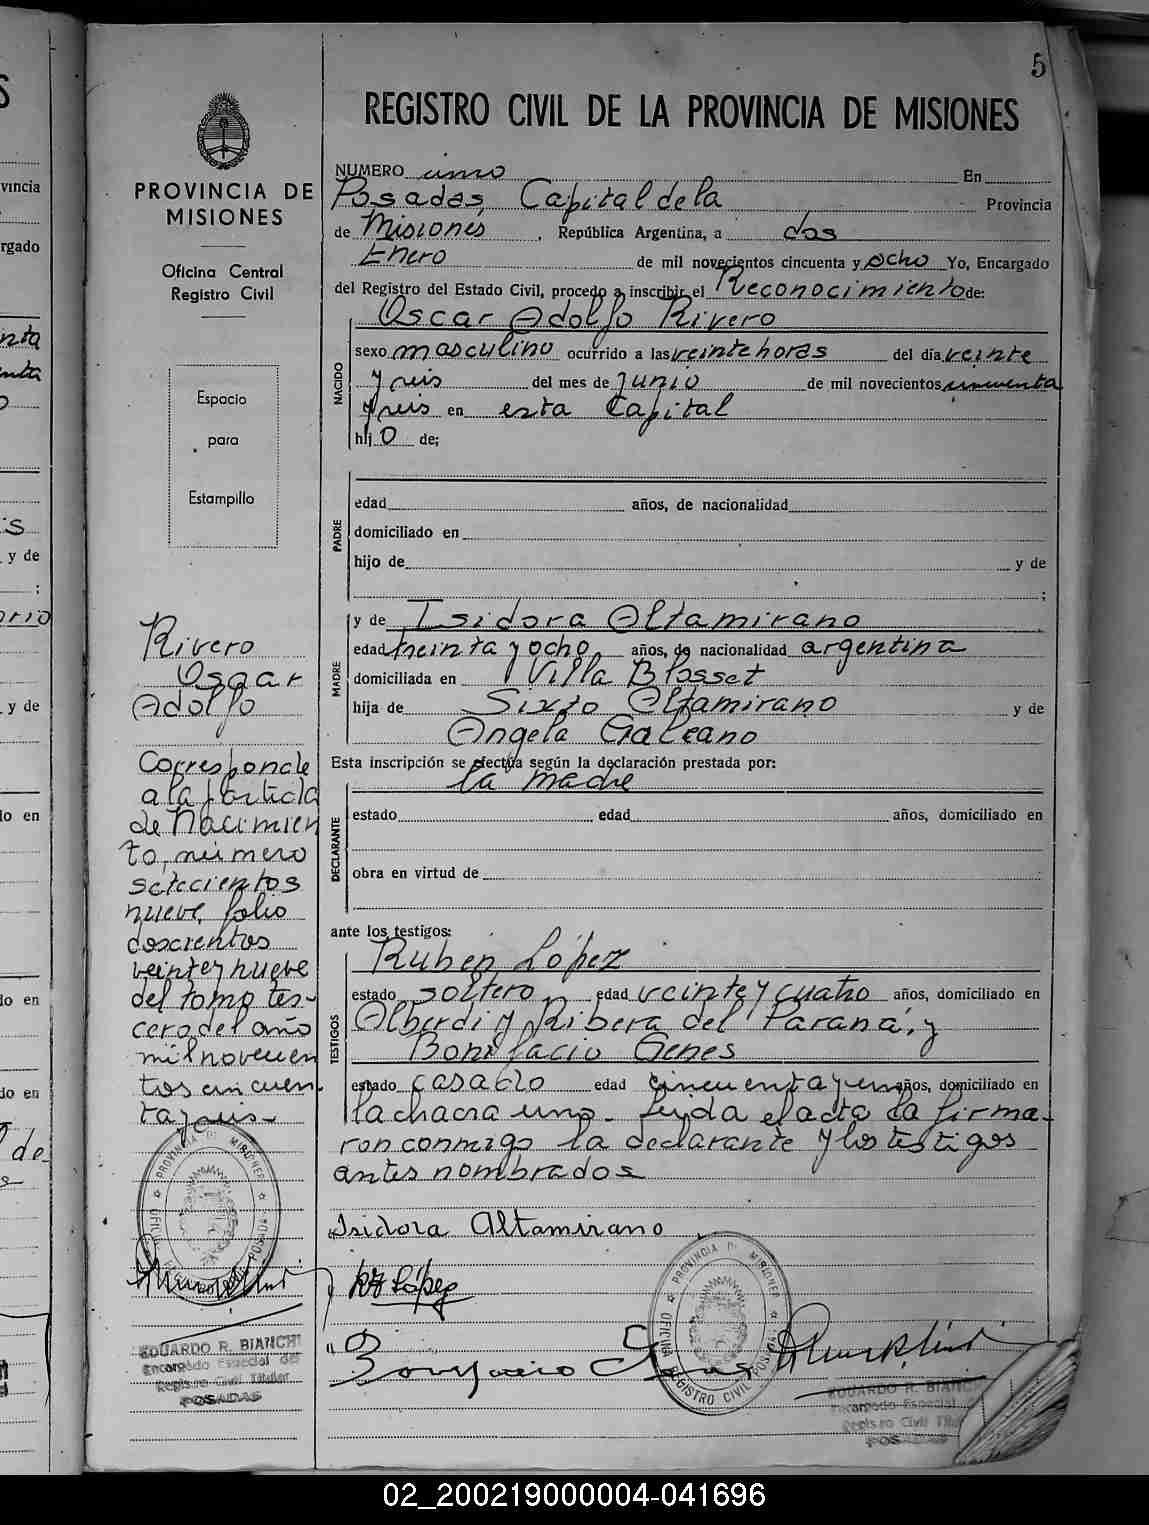 5
REGISTRO CIVIL DE LA PROVINCIA DE MISIONES
PROVINCIA DE
MISIONES
Oficina Central
Registro Civil
Espacio
para
Estampilla
Rivero
Oscar
Adolfo
Corresponde
a la partida
de Nacimien
to, número
setecientos
nueve, folio
doscientos
veinte y nueve
del tomo ter-
cero del año
mil novecien
tos cincuen
ta y seis-
PROVINCIA DE MISIONES
OFICINA REGISTRO CIVIL POSADAS
EDUARDO R. BIANCHI
Encargado Especial del
Registro Civil Titular
POSADAS
NUMERO uno En
Posadas, Capital de la Provincia
de Misiones, República Argentina, a dos
Enero de mil novecientos cincuenta y ocho Yo, Encargado
del Registro del Estado Civil, procedo a inscribir el Reconocimiento de:
Oscar Adolfo Rivero
NACIDO
sexo masculino ocurrido a las veinte horas del día veinte
y seis del mes de junio de mil novecientos cincuenta
y seis en esta Capital
hijo de;
PADRE
edad años, de nacionalidad
domiciliado en
hijo de y de
;
MADRE
y de Isidora Altamirano
edad treinta y ocho años, de nacionalidad argentina
domiciliada en Villa Blosset
hija de Sixto Altamirano y de
Angela Galeano
Esta inscripción se efectúa según la declaración prestada por:
la madre
DECLARANTE
estado edad años, domiciliado en
obra en virtud de
ante los testigos:
Ruben López
TESTIGOS
estado soltero edad veinte y cuatro años, domiciliado en
Alberdi y Ribera del Paraná, y
Bonifacio Genes
estado casado edad cincuenta y un años, domiciliado en
la chacra uno- Leida el acta la firma-
ron conmigo la declarante y los testigos
antes nombrados
Isidora Altamirano
López
Bonifacio Genes
PROVINCIA DE MISIONES
OFICINA REGISTRO CIVIL POSADAS
EDUARDO R. BIANCHI
Encargado Especial
Registro Civil Titular
POSADAS
02_200219000004-041696